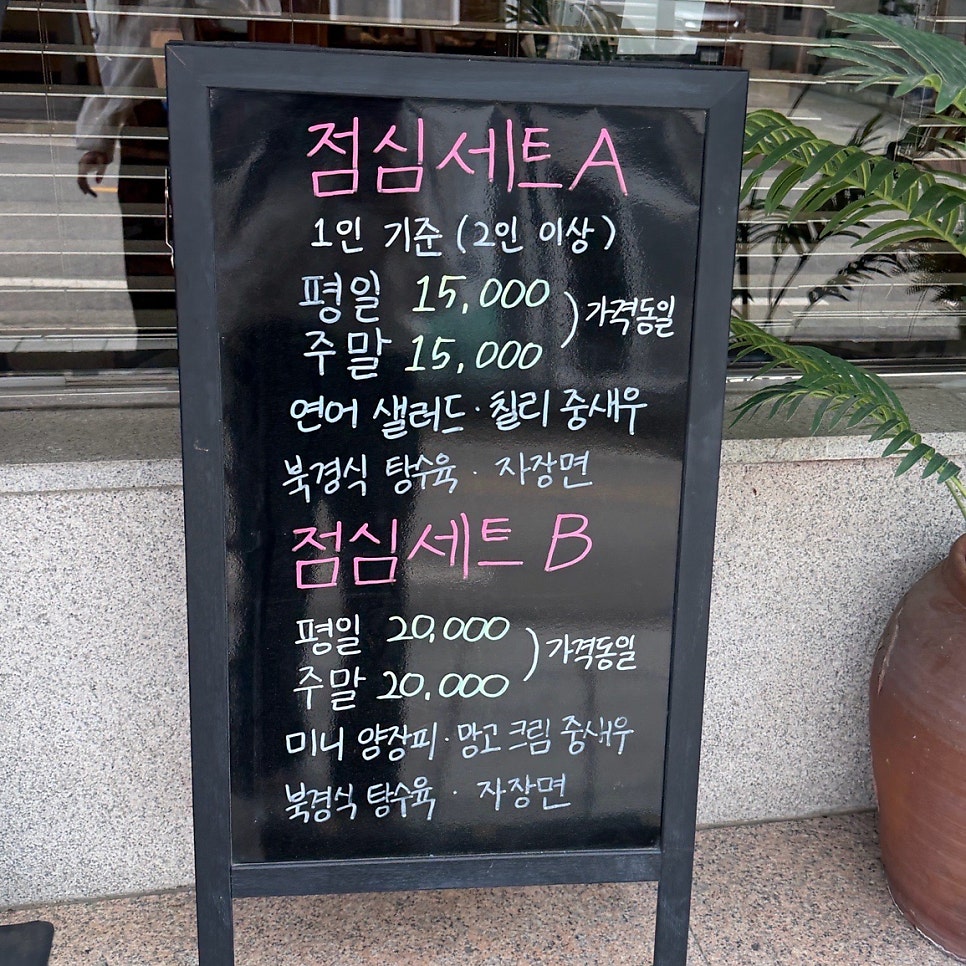 점심세트 A
1인 기준 (2인 이상)
평일 15,000
주말 15,000
) 가격동일
연어 샐러드 · 칠리 중새우
북경식 탕수육 · 자장면
점심세트 B
평일 20,000
주말 20,000
) 가격동일
미니 양장피 · 망고 크림 중새우
북경식 탕수육 · 자장면